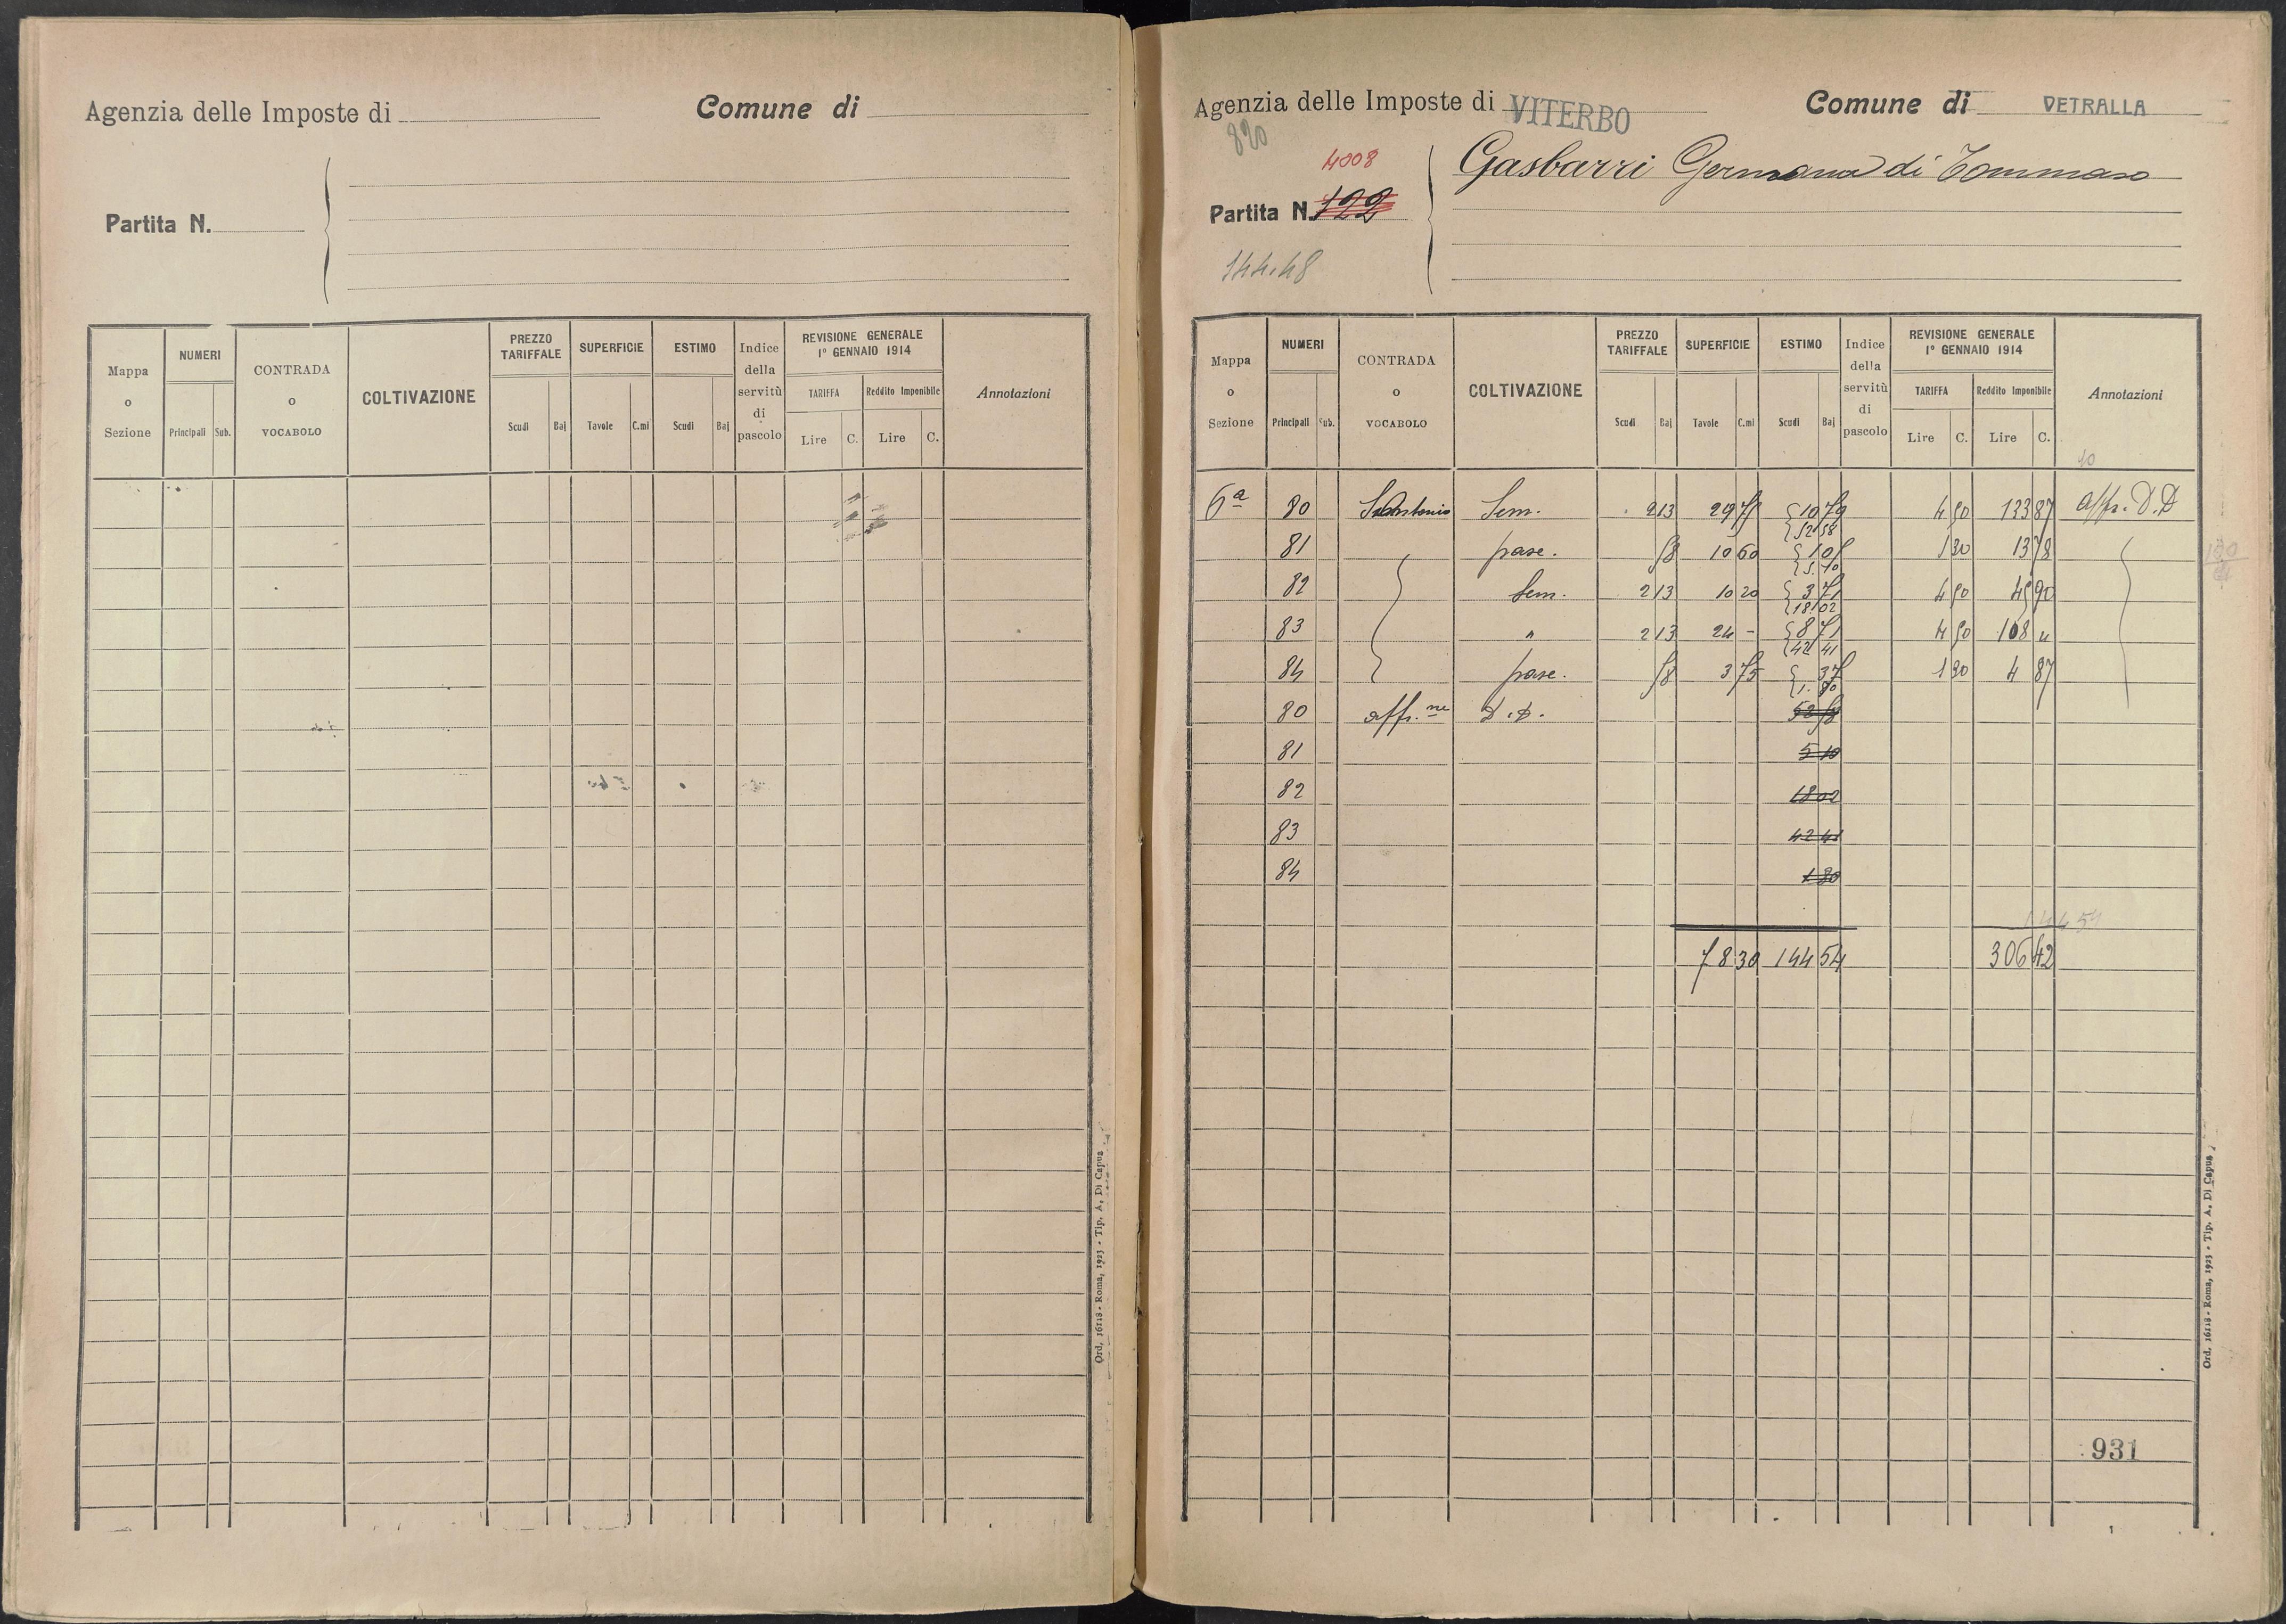 Agenzia delle Imposte di
Comune di
Partita N.
Mappa o Sezione
NUMERI
Principali Sub.
CONTRADA o VOCABOLO
COLTIVAZIONE
PREZZO TARIFFALE
Scudi Baj
SUPERFICIE
Tavole C.mi
ESTIMO
Scudi Baj
Indice della servitù di pascolo
REVISIONE GENERALE 1° GENNAIO 1914
TARIFFA
Lire C.
Reddito Imponibile
Lire C.
Annotazioni
Ord. 16118 - Roma, 1923 - Tip. A. Di Capua
Agenzia delle Imposte di VITERBO
Comune di VETRALLA
820
4008
Partita N. 122
Gasbarri Germana di Tommaso
144.48
Mappa o Sezione
NUMERI
Principali Sub.
CONTRADA o VOCABOLO
COLTIVAZIONE
PREZZO TARIFFALE
Scudi Baj
SUPERFICIE
Tavole C.mi
ESTIMO
Scudi Baj
Indice della servitù di pascolo
REVISIONE GENERALE 1° GENNAIO 1914
TARIFFA
Lire C.
Reddito Imponibile
Lire C.
Annotazioni
10
6ª 80 S. Antonio Sem. 2 13 29 75 10 79 4 50 133 87 affr. D.D
52 58
81 pasc. 58 10 60 1 05 1 30 13 78
5. 10
82 Sem. 2 13 10 20 3 71 4 50 45 90
18 02
83 " 2 13 24 - 8 71 4 50 108 "
42 41
84 pasc. 58 3 75 37 1 30 4 87
1. 80
80 affr.ne d.d. 52 58
81 5 10
82 18 02
83 42 41
84 1 80
144 54
78 30 144 54 306 42
931
Ord. 16118 - Roma, 1923 - Tip. A. Di Capua